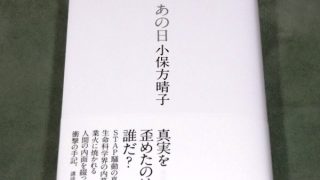 あの日 小保方晴子
真実を
歪めたのは
誰だ?
STAP騒動の真
生命科学界の内幕
業火に焼かれる
人間の内面を綴っ
衝撃の手記。講談